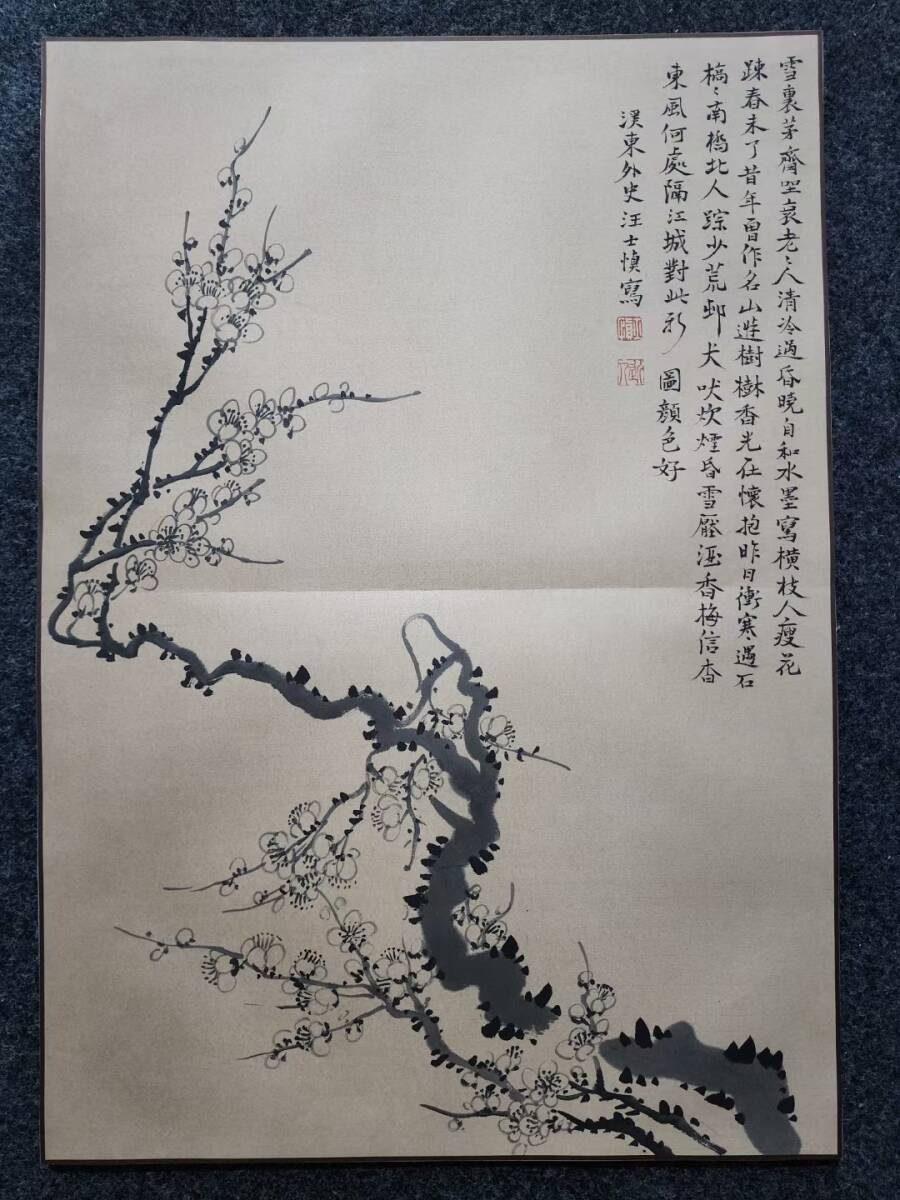 雪裏茅齊坐衰老〻人清冷過昏曉自和水墨寫横枝人瘦花
踈春未了昔年曾作名山遊樹樹香光在懷抱昨日衝寒過石
橋〻南橋北人踪少荒邨犬吠炊煙昏雪壓酒香梅信杳
東風何處隔江城對此新圖顏色好
溪東外史汪士慎寫